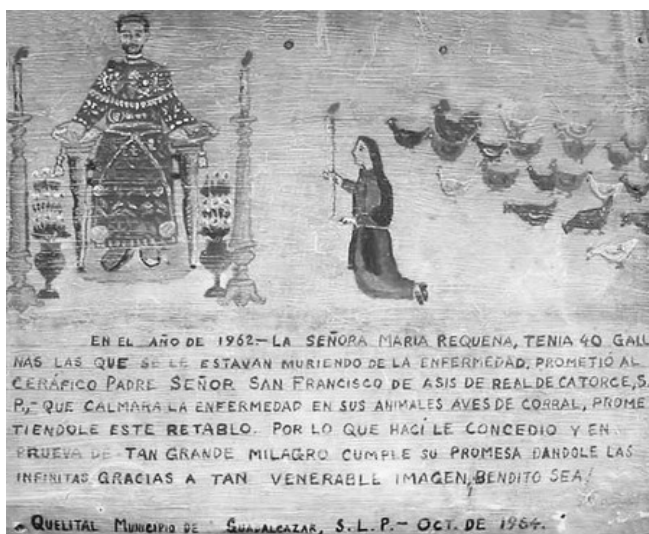 EN EL AÑO DE 1962.- LA SEÑORA MARIA REQUENA, TENIA 40 GALLI
NAS LAS QUE SE LE ESTAVAN MURIENDO DE LA ENFERMEDAD, PROMETIÓ AL
CERÁFICO PADRE SEÑOR SAN FRANCISCO DE ASIS DE REAL DE CATORCE, S.
P.,- QUE CALMARA LA ENFERMEDAD EN SUS ANIMALES AVES DE CORRAL, PROME
TIENDOLE ESTE RETABLO. POR LO QUE HACÍ LE CONCEDIO Y EN
PRUEVA DE TAN GRANDE MILAGRO CUMPLE SU PROMESA DANDOLE LAS
INFINITAS GRACIAS A TAN VENERABLE IMAGEN, BENDITO SEA!
QUELITAL MUNICIPIO DE GUADALCAZAR, S.L.P.- OCT. DE 1964.